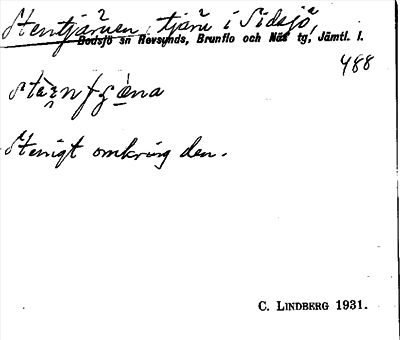 Stentjärnen, tjärn i Sidsjö,
Bodsjö sn Revsunds, Brunflo och Näs tg, Jämtl. l.
488
Stenigt omkring den.
C. LINDBERG 1931.